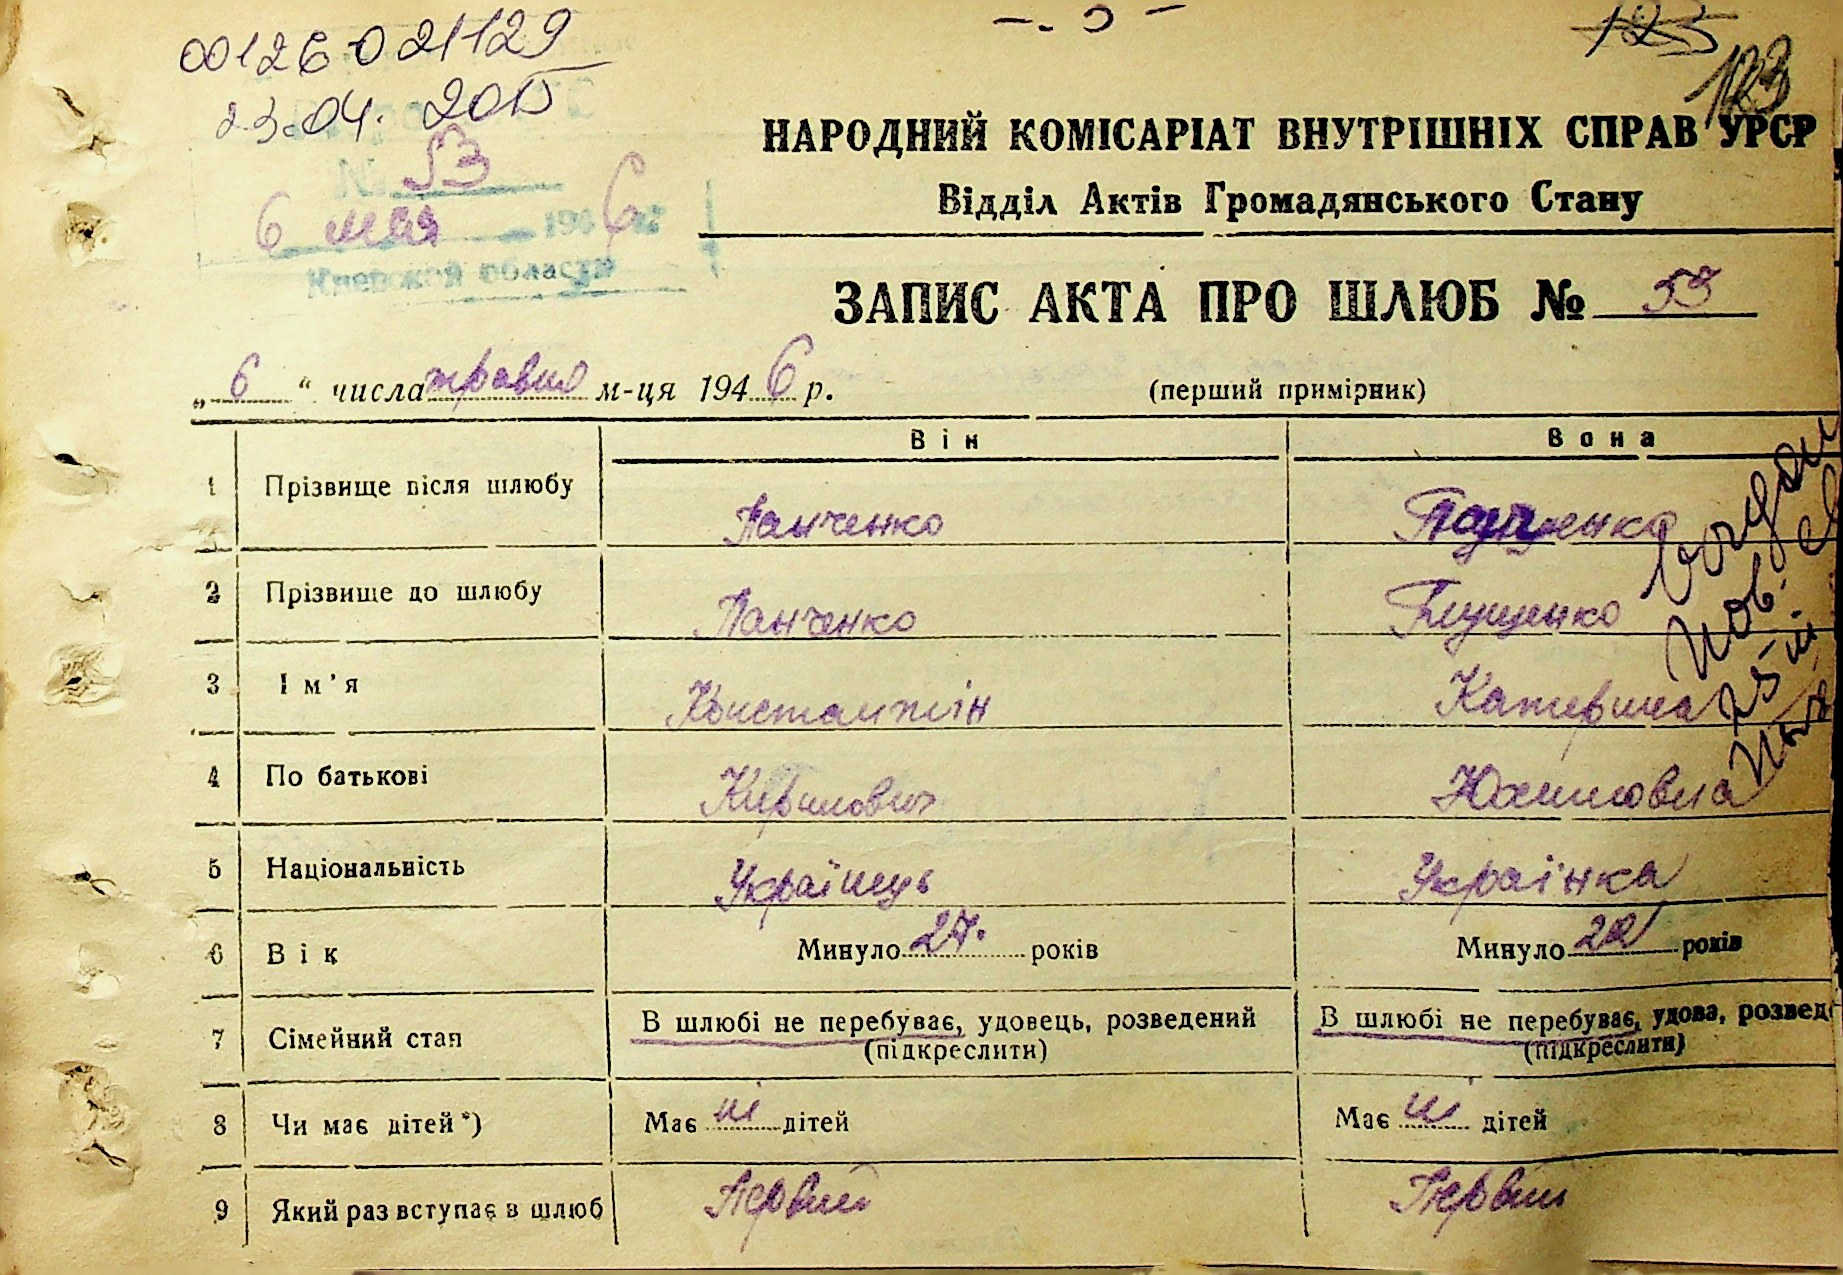 00126021129
23.04. 2015
123
123
№ 53
6 мая 1946
Киевской области
НАРОДНИЙ КОМІСАРІАТ ВНУТРІШНІХ СПРАВ УРСР
Відділ Актів Громадянського Стану
ЗАПИС АКТА ПРО ШЛЮБ № 53
„ 6 “ числа травня м-ця 1946 р. (перший примірник)
Він Вона
1 Прізвище після шлюбу Панченко Панченко
2 Прізвище до шлюбу Панченко Глущенко
3 Ім'я Константін Катерина
4 По батькові Кирилович Юхимовна
5 Національність Українець Українка
6 Вік Минуло 27. років Минуло 22 років
7 Сімейний стан В шлюбі не перебуває, удовець, розведений В шлюбі не перебуває, удова, розвед
(підкреслити) (підкреслити)
8 Чи має дітей *) Має ні дітей Має ні дітей
9 Який раз вступає в шлюб Первий Первий